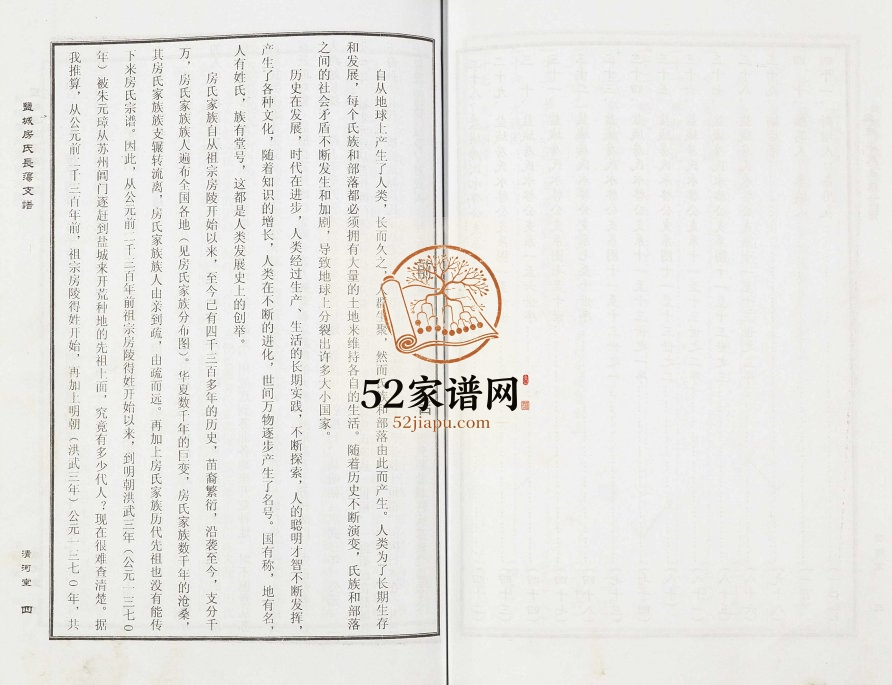 自从地球上产生了人类，长而久之，人群生聚，然而氏族和部落由此而产生。人类为了长期生存
和发展，每个氏族和部落都必须拥有大量的土地来维持各自的生活。随着历史不断演变，氏族和部落
之间的社会矛盾不断发生和加剧，导致地球上分裂出许多大小国家。
历史在发展，时代在进步，人类经过生产、生活的长期实践，不断探索，人的聪明才智不断发挥，
产生了各种文化，随着知识的增长，人类在不断的进化，世间万物逐步产生了名号。国有称，地有名，
人有姓氏，族有堂号，这都是人类发展史上的创举。
房氏家族自从祖宗房陵开始以来，至今已有四千三百多年的历史，苗裔繁衍，沿袭至今，支分千
万，房氏家族族人遍布全国各地（见房氏家族分布图）。华夏数千年的巨变，房氏家族数千年的沧桑，
其房氏家族族支辗转流离，房氏家族族人由亲到疏，由疏而远。再加上房氏家族历代先祖也没有能传
下来房氏宗谱。因此，从公元前二千三百年前祖宗房陵得姓开始以来，到明朝洪武三年（公元一三七〇
年）被朱元璋从苏州阊门逐赶到盐城来开荒种地的先祖上面，究竟有多少代人？现在很难查清楚。据
我推算，从公元前二千三百年前，祖宗房陵得姓开始，再加上明朝（洪武三年）公元一三七〇年，共
盐城房氏長蕩支譜
清河堂 四
52家谱网
52jiapu.com